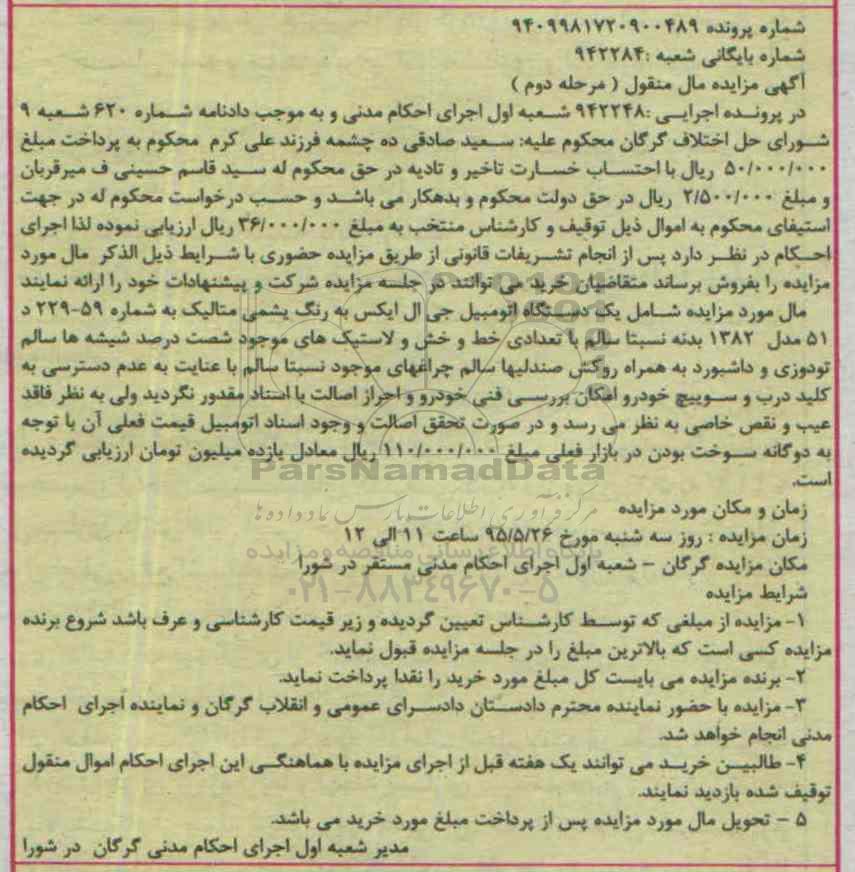 شماره پرونده ۹۴۰۹۹۸۱۷۲۰۹۰۰۴۸۹
شماره بایگانی شعبه :۹۴۲۲۸۴
آگهی مزایده مال منقول ( مرحله دوم )
در پرونده اجرایی :۹۴۲۲۴۸ شعبه اول اجرای احکام مدنی و به موجب دادنامه شماره ۶۲۰ شعبه ۹
شورای حل اختلاف گرگان محکوم علیه: سعید صادقی ده چشمه فرزند علی کرم محکوم به پرداخت مبلغ
۵۰/۰۰۰/۰۰۰ ریال با احتساب خسارت تاخیر و تادیه در حق محکوم له سید قاسم حسینی ف میرقربان
و مبلغ ۲/۵۰۰/۰۰۰ ریال در حق دولت محکوم و بدهکار می باشد و حسب درخواست محکوم له در جهت
استیفای محکوم به اموال ذیل توقیف و کارشناس منتخب به مبلغ ۳۶/۰۰۰/۰۰۰ ریال ارزیابی نموده لذا اجرای
احکام در نظر دارد پس از انجام تشریفات قانونی از طریق مزایده حضوری با شرایط ذیل الذکر مال مورد
مزایده را بفروش برساند متقاضیان خرید می توانند در جلسه مزایده شرکت و پیشنهادات خود را ارائه نمایند
مال مورد مزایده شامل یک دستگاه اتومبیل جی ال ایکس به رنگ یشمی متالیک به شماره ۵۹-۲۲۹ د
۵۱ مدل ۱۳۸۲ بدنه نسبتا سالم با تعدادی خط و خش و لاستیک های موجود شصت درصد شیشه ها سالم
تودوزی و داشبورد به همراه روکش صندلیها سالم چراغهای موجود نسبتا سالم با عنایت به عدم دسترسی به
کلید درب و سوییچ خودرو امکان بررسی فنی خودرو و احراز اصالت با اسناد مقدور نگردید ولی به نظر فاقد
عیب و نقص خاصی به نظر می رسد و در صورت تحقق اصالت و وجود اسناد اتومبیل قیمت فعلی آن با توجه
به دوگانه سوخت بودن در بازار فعلی مبلغ ۱۱۰/۰۰۰/۰۰۰ ریال معادل یازده میلیون تومان ارزیابی گردیده
است.
ParsNamadData
زمان و مکان مورد مزایده
مرکز فرآوری اطلاعات پارس نماد داده ها
زمان مزایده : روز سه شنبه مورخ ۹۵/۵/۲۶ ساعت ۱۱ الی ۱۲
پایگاه اطلاع رسانی مناقصه و مزایده
مکان مزایده گرگان – شعبه اول اجرای احکام مدنی مستقر در شورا
۰۲۱-۸۸۳۴۹۶۷۰-۵
شرایط مزایده
۱- مزایده از مبلغی که توسط کارشناس تعیین گردیده و زیر قیمت کارشناسی و عرف باشد شروع برنده
مزایده کسی است که بالاترین مبلغ را در جلسه مزایده قبول نماید.
۲- برنده مزایده می بایست کل مبلغ مورد خرید را نقدا پرداخت نماید.
۳- مزایده با حضور نماینده محترم دادستان دادسرای عمومی و انقلاب گرگان و نماینده اجرای احکام
مدنی انجام خواهد شد.
۴- طالبین خرید می توانند یک هفته قبل از اجرای مزایده با هماهنگی این اجرای احکام اموال منقول
توقیف شده بازدید نمایند.
۵ – تحویل مال مورد مزایده پس از پرداخت مبلغ مورد خرید می باشد.
مدیر شعبه اول اجرای احکام مدنی گرگان در شورا